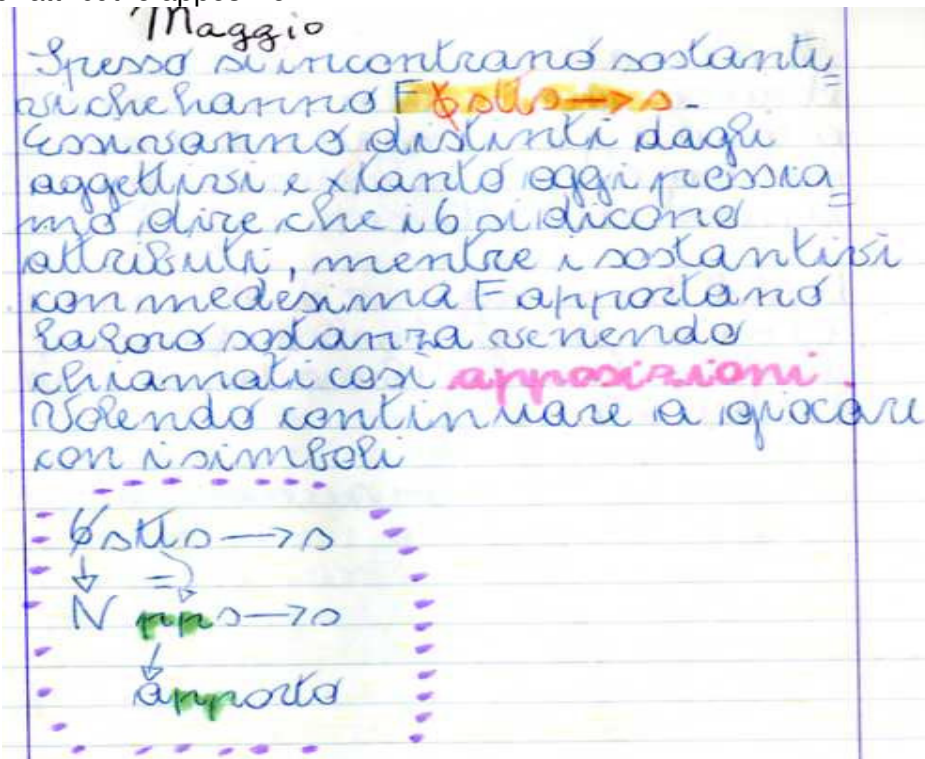 Maggio
Spesso si incontrano sostanti=
vi che hanno F 6 stts→s.
Essi vanno distinti dagli
aggettivi e xtanto oggi possia=
mo dire che i 6 si dicono
attributi, mentre i sostantivi
con medesima F apportano
la loro sostanza venendo
chiamati così apposizioni.
Volendo continuare a giocare
con i simboli
6 stts→s
↓ =
N pps→s
↓
apporto